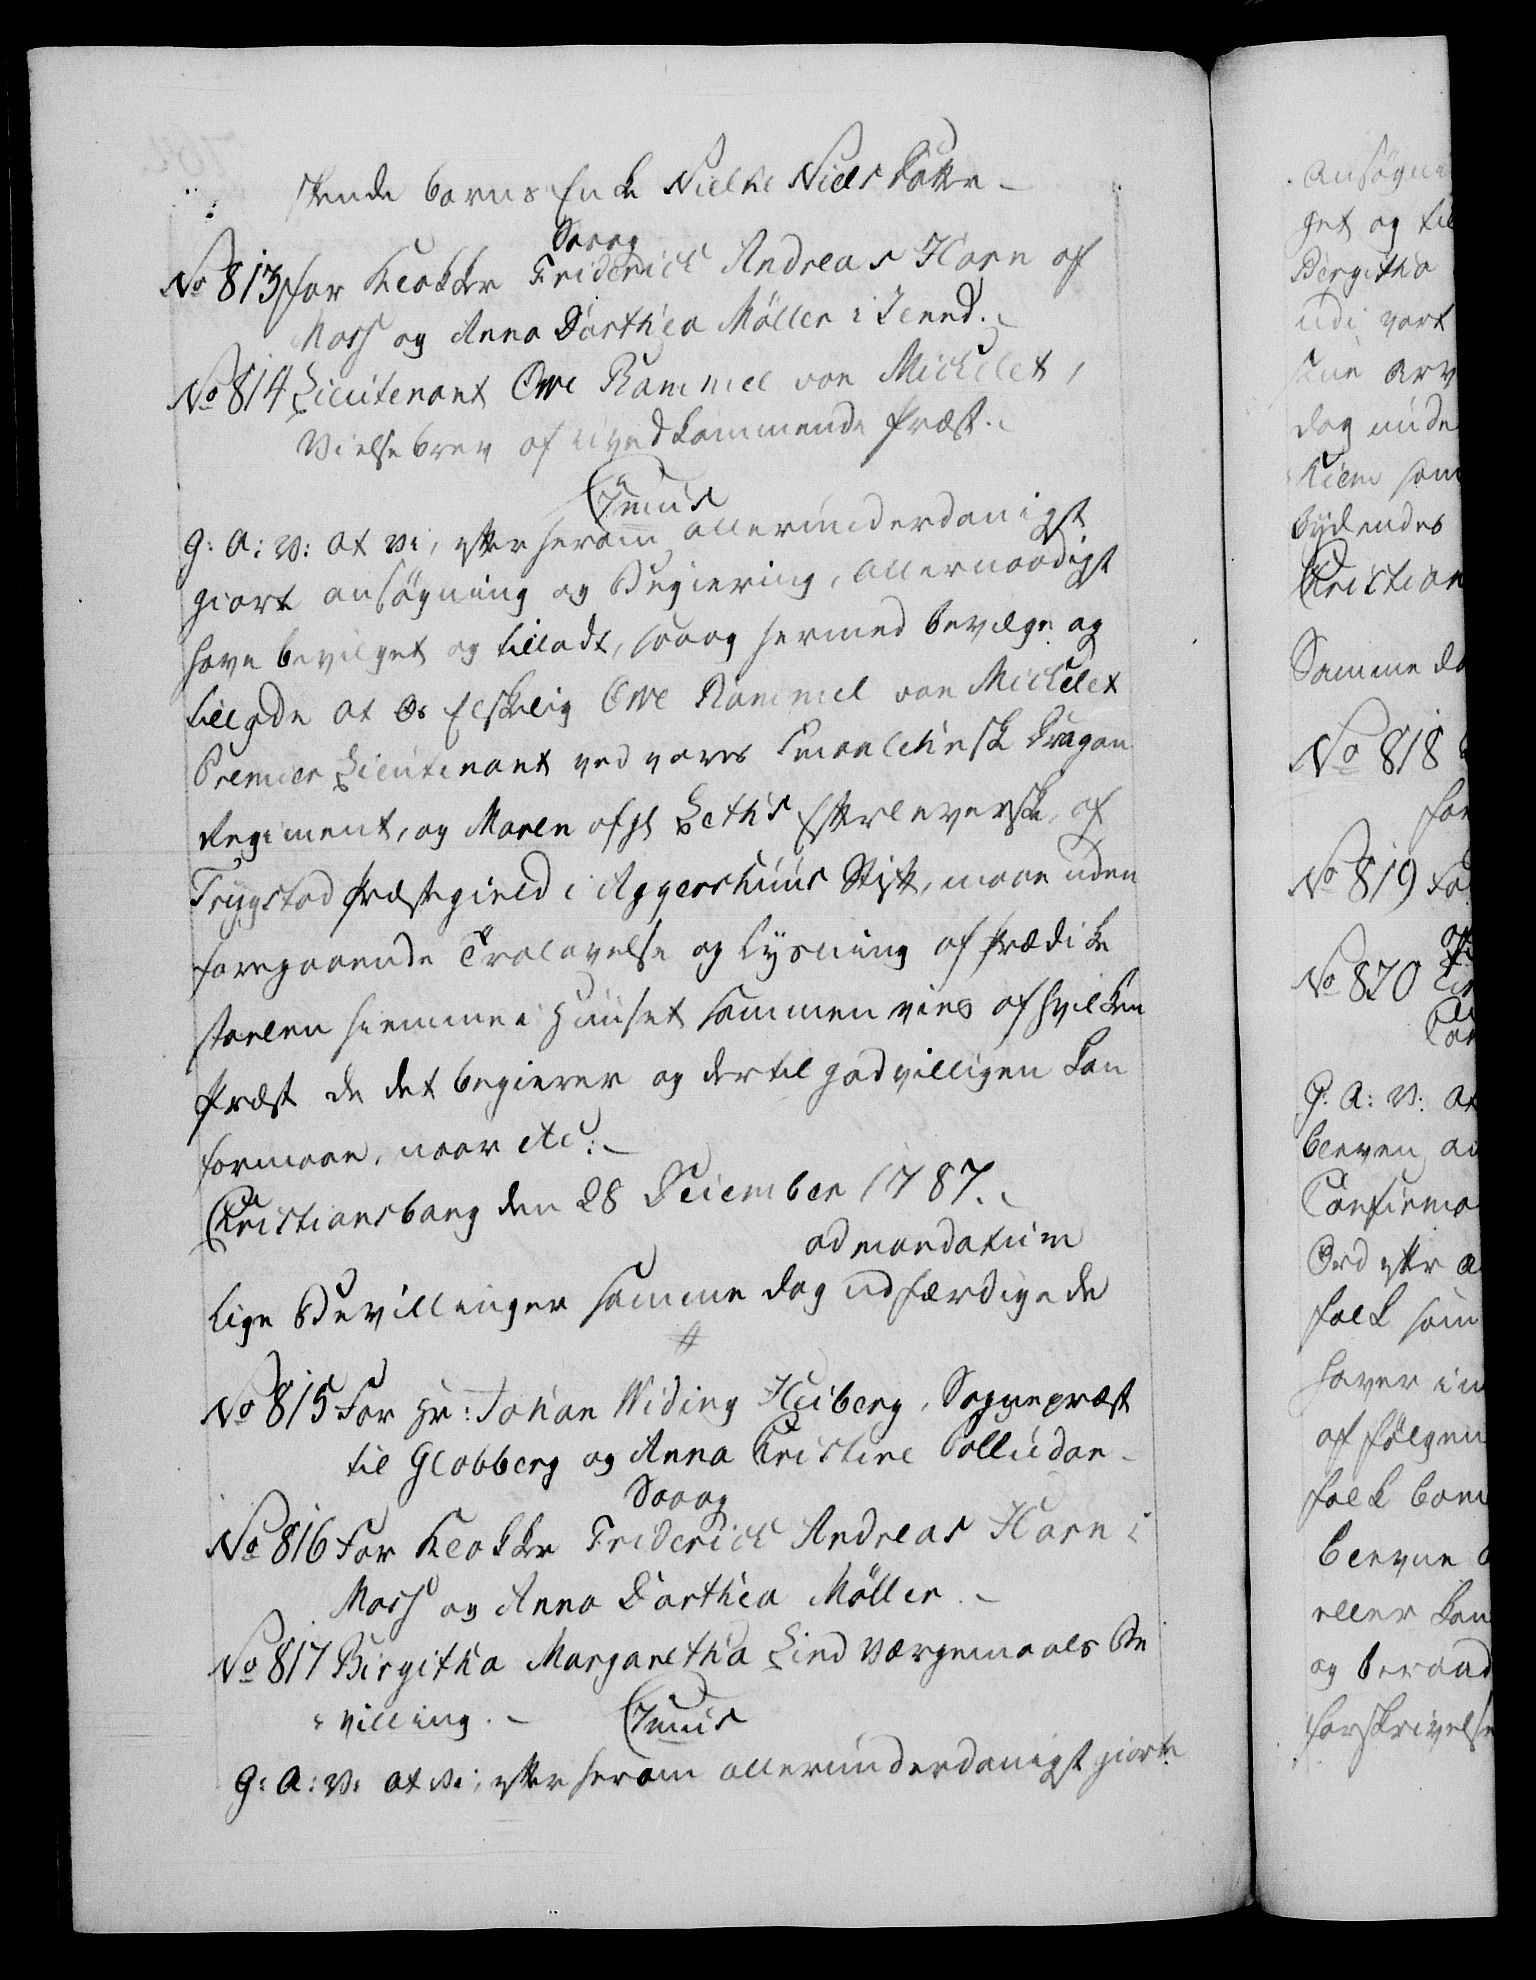 skende barns Enke Nielke Niels Datter
Saaog
No 813 for Klokker Friderich Andreas Horn af
Moss og Anna Dorthea Möller i Lennd.
No 814 Lieutenant Owe Rammel von Michelet,
Vielsebrev af uvedkommende Præst.
Junis
G: A: V: at vi, efter herom allerunderdanigst
giort ansøgning og Begiering, allernaadigst
have bevilget og tilladt, saaog hermed bevilge og
tillade at Os Elskelig Owe Rammel von Michelet
Premier Lieutenant ved vores Smaalehnsk Dragon
Regiment, og Maren afgl Leth's Efterleverske, af
Trygstad Præstegield i Aggershuus Stift, maae uden
foregaaende Trolovelse og Lysning af Prædike
stoelen hiemme i Huuset sammen vies af hvilken
Præst de det begierer og dertil godvilligen kan
formaae, naar etc:
Christiansborg den 28 December 1787.
ad mandatum
Lige Bevillinger samme dag udfærdigede
No 815 For Hr: Johan Widing Heiberg, Sognepræst
til Globberg og Anna Christine Palludan
Saaog
No 816 For Klokker Friderich Andreas Horn i
Moss og Anna Dorthea Möller.
No 817 Birgitha Margaretha Lind Værgemaals Be
villing.
Junis
G: A: V: at vi, efter herom allerunderdanigst giort
ansøgni
get og til
Birgitha
udi vort
dag unde
hiem som
bydendes
Christian
Samme da
No 818
for
No 819 Fo
No 820
G: A: V: at
Confirma
Ord efter
folk som
haver in
af følgen
folk barn
eller kan
forskrivelse